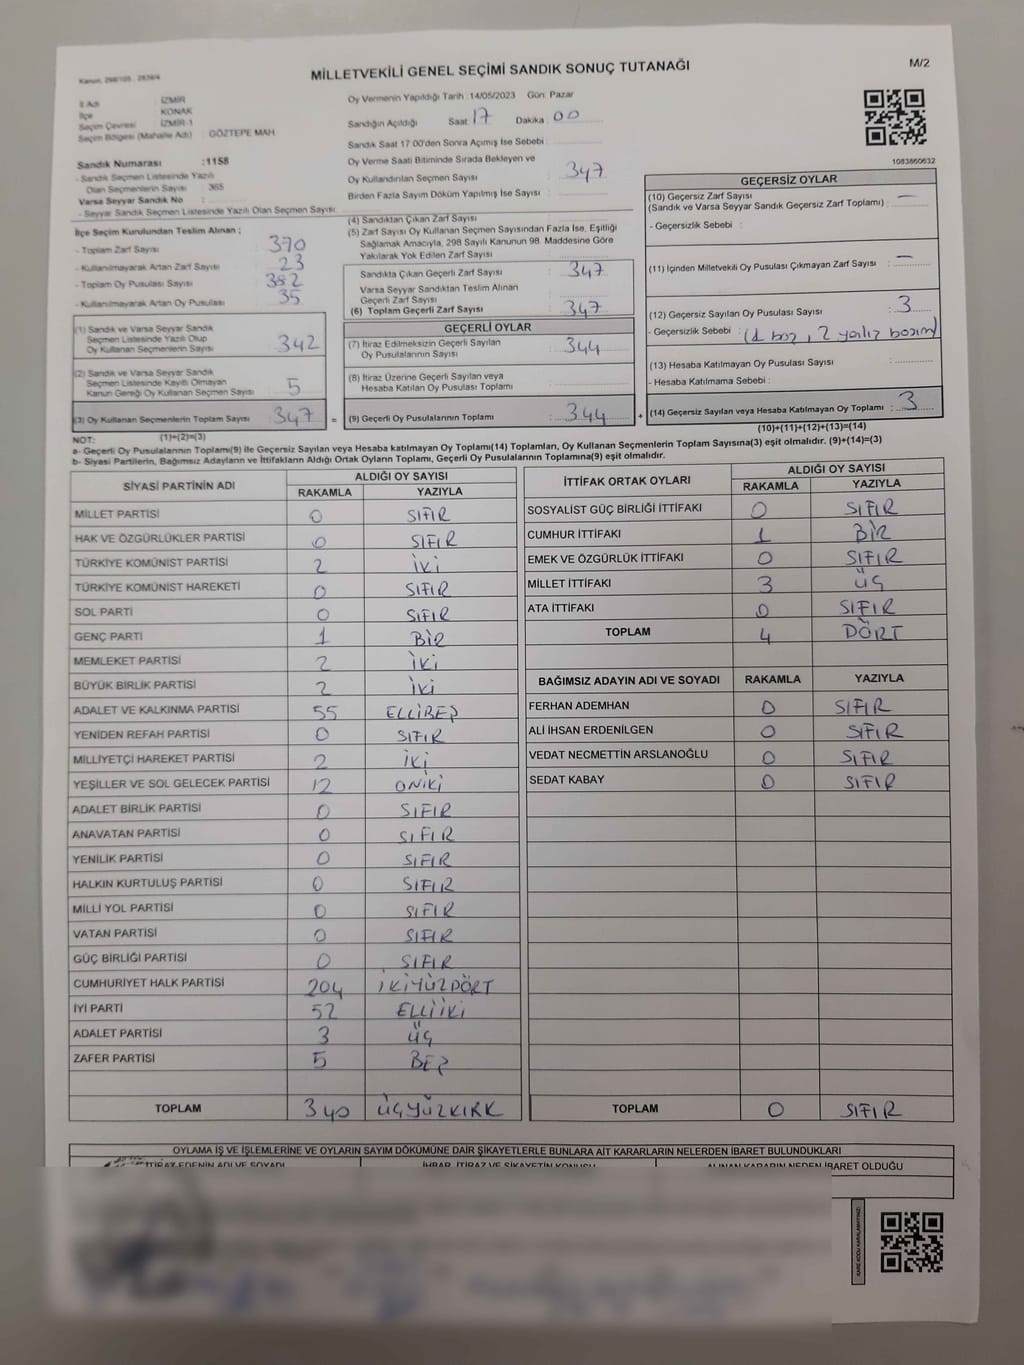 Kanun: 298/105 , 2839/4
MİLLETVEKİLİ GENEL SEÇİMİ SANDIK SONUÇ TUTANAĞI
M/2
İl Adı İZMİR
İlçe KONAK
Seçim Çevresi İZMİR-1
Seçim Bölgesi (Mahalle Adı) : GÖZTEPE MAH
Sandık Numarası :1158
- Sandık Seçmen Listesinde Yazılı
Olan Seçmenlerin Sayısı : 365
Varsa Seyyar Sandık No :
- Seyyar Sandık Seçmen Listesinde Yazılı Olan Seçmen Sayısı:
Oy Vermenin Yapıldığı Tarih :14/05/2023 Gün: Pazar
Sandığın Açıldığı Saat : 17 Dakika : 00
Sandık Saat 17:00'den Sonra Açımış İse Sebebi :
Oy Verme Saati Bitiminde Sırada Bekleyen ve
Oy Kullandırılan Seçmen Sayısı : 347
Birden Fazla Sayım Döküm Yapılmış İse Sayısı :
1083860632
İlçe Seçim Kurulundan Teslim Alınan ;
- Toplam Zarf Sayısı : 370
- Kullanılmayarak Artan Zarf Sayısı : 23
- Toplam Oy Pusulası Sayısı : 382
- Kullanılmayarak Artan Oy Pusulası : 35
(1) Sandık ve Varsa Seyyar Sandık
Seçmen Listesinde Yazılı Olup
Oy Kullanan Seçmenlerin Sayısı : 342
(2) Sandık ve Varsa Seyyar Sandık
Seçmen Listesinde Kayıtlı Olmayan
Kanun Gereği Oy Kullanan Seçmen Sayısı : 5
(3) Oy Kullanan Seçmenlerin Toplam Sayısı : 347
(1)+(2)=(3)
(4) Sandıktan Çıkan Zarf Sayısı :
(5) Zarf Sayısı Oy Kullanan Seçmen Sayısından Fazla İse, Eşitliği
Sağlamak Amacıyla, 298 Sayılı Kanunun 98. Maddesine Göre
Yakılarak Yok Edilen Zarf Sayısı :
Sandıkta Çıkan Geçerli Zarf Sayısı : 347
Varsa Seyyar Sandıktan Teslim Alınan
Geçerli Zarf Sayısı :
(6) Toplam Geçerli Zarf Sayısı : 347
GEÇERLİ OYLAR
(7) İtiraz Edilmeksizin Geçerli Sayılan
Oy Pusulalarının Sayısı : 344
(8) İtiraz Üzerine Geçerli Sayılan veya
Hesaba Katılan Oy Pusulası Toplamı :
= (9) Geçerli Oy Pusulalarının Toplamı : 344 +
GEÇERSİZ OYLAR
(10) Geçersiz Zarf Sayısı
(Sandık ve Varsa Seyyar Sandık Geçersiz Zarf Toplamı) : —
- Geçersizlik Sebebi :
(11) İçinden Milletvekili Oy Pusulası Çıkmayan Zarf Sayısı : —
(12) Geçersiz Sayılan Oy Pusulası Sayısı : 3
- Geçersizlik Sebebi :
(13) Hesaba Katılmayan Oy Pusulası Sayısı :
- Hesaba Katılmama Sebebi :
(14) Geçersiz Sayılan veya Hesaba Katılmayan Oy Toplamı : 3
(10)+(11)+(12)+(13)=(14)
NOT:
a- Geçerli Oy Pusulalarının Toplamı(9) ile Geçersiz Sayılan veya Hesaba katılmayan Oy Toplamı(14) Toplamları, Oy Kullanan Seçmenlerin Toplam Sayısına(3) eşit olmalıdır. (9)+(14)=(3)
b- Siyasi Partilerin, Bağımsız Adayların ve İttifakların Aldığı Ortak Oyların Toplamı, Geçerli Oy Pusulalarının Toplamına(9) eşit olmalıdır.
SİYASİ PARTİNİN ADI ALDIĞI OY SAYISI
RAKAMLA YAZIYLA
MİLLET PARTİSİ 0 SIFIR
HAK VE ÖZGÜRLÜKLER PARTİSİ 0 SIFIR
TÜRKİYE KOMÜNİST PARTİSİ 2 İKİ
TÜRKİYE KOMÜNİST HAREKETİ 0 SIFIR
SOL PARTİ 0 SIFIR
GENÇ PARTİ 1 BİR
MEMLEKET PARTİSİ 2 İKİ
BÜYÜK BİRLİK PARTİSİ 2 İKİ
ADALET VE KALKINMA PARTİSİ 55 ELLİBEŞ
YENİDEN REFAH PARTİSİ 0 SIFIR
MİLLİYETÇİ HAREKET PARTİSİ 2 İKİ
YEŞİLLER VE SOL GELECEK PARTİSİ 12 ONİKİ
ADALET BİRLİK PARTİSİ 0 SIFIR
ANAVATAN PARTİSİ 0 SIFIR
YENİLİK PARTİSİ 0 SIFIR
HALKIN KURTULUŞ PARTİSİ 0 SIFIR
MİLLİ YOL PARTİSİ 0 SIFIR
VATAN PARTİSİ 0 SIFIR
GÜÇ BİRLİĞİ PARTİSİ 0 SIFIR
CUMHURİYET HALK PARTİSİ 204 İKİYÜZDÖRT
İYİ PARTİ 52 ELLİİKİ
ADALET PARTİSİ 3 ÜÇ
ZAFER PARTİSİ 5 BEŞ
TOPLAM 340 ÜÇYÜZKIRK
İTTİFAK ORTAK OYLARI ALDIĞI OY SAYISI
RAKAMLA YAZIYLA
SOSYALİST GÜÇ BİRLİĞİ İTTİFAKI 0 SIFIR
CUMHUR İTTİFAKI 1 BİR
EMEK VE ÖZGÜRLÜK İTTİFAKI 0 SIFIR
MİLLET İTTİFAKI 3 ÜÇ
ATA İTTİFAKI 0 SIFIR
TOPLAM 4 DÖRT
BAĞIMSIZ ADAYIN ADI VE SOYADI RAKAMLA YAZIYLA
FERHAN ADEMHAN 0 SIFIR
ALİ İHSAN ERDENİLGEN 0 SIFIR
VEDAT NECMETTİN ARSLANOĞLU 0 SIFIR
SEDAT KABAY 0 SIFIR
TOPLAM 0 SIFIR
OYLAMA İŞ VE İŞLEMLERİNE VE OYLARIN SAYIM DÖKÜMÜNE DAİR ŞİKAYETLERLE BUNLARA AİT KARARLARIN NELERDEN İBARET BULUNDUKLARI
İTİRAZ EDENİN ADI VE SOYADI İHBAR, İTİRAZ VE ŞİKAYETİN KONUSU ALINAN KARARIN NEDEN İBARET OLDUĞU
KARE KODU KARALAMAYINIZ!